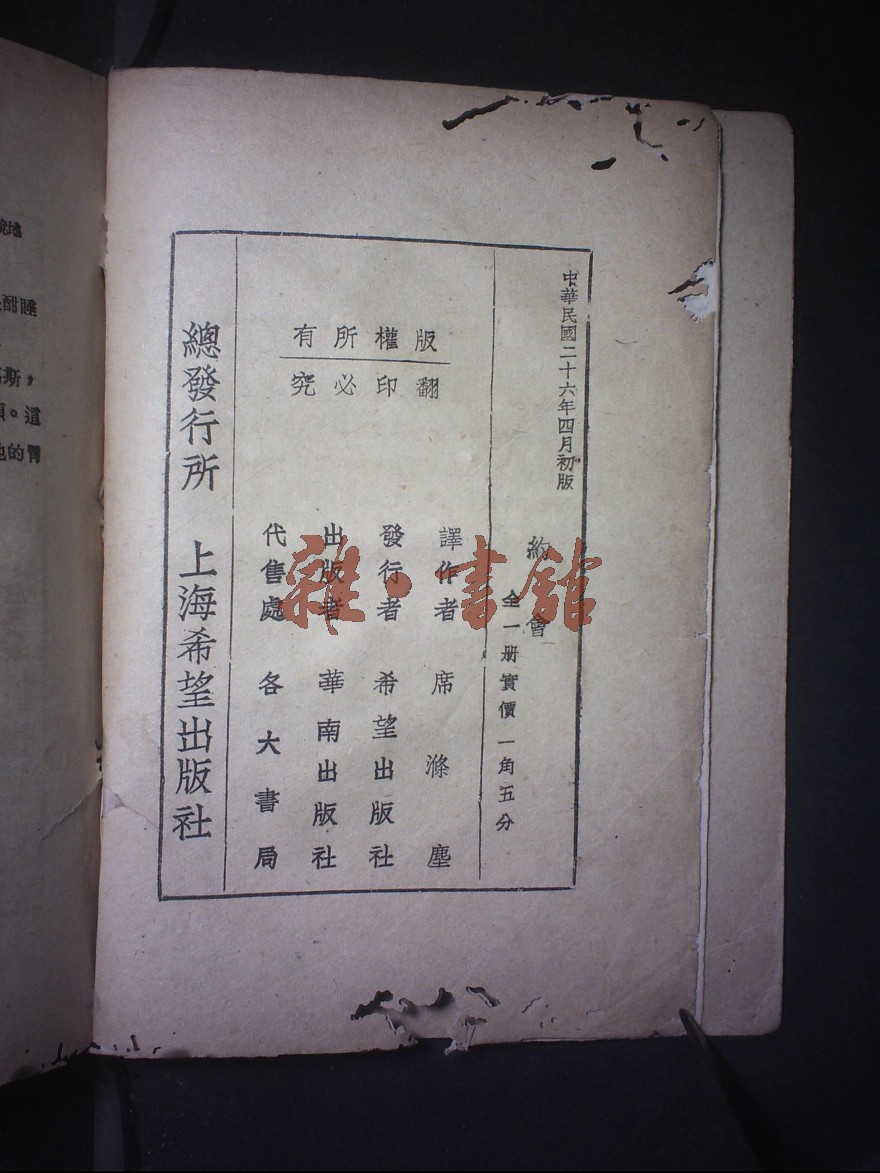 中華民國二十六年四月初版
約會
全一册實價一角五分
版權所有
翻印必究
譯作者 席滌塵
發行者 希望出版社
出版者 華南出版社
代售處 各大書局
總發行所 上海希望出版社
酣睡
斯，
。這
的胃
雜·書館